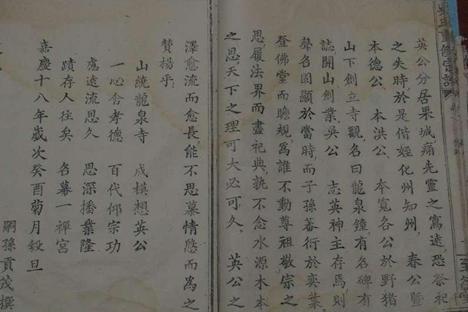 英公分居果城痛先靈之寫遠恐祭祀
之失時於是偕姪化州知州 春公暨
本德公 本洪公 本寬各公於野猎
山下創立寺觀名曰龍泉鐘有名碑有
誌開山創業吳公 志英神主存焉則
聲名固顯於當時而子孫蕃衍於奕葉
登佛堂而瞻規為誰不動尊祖敬宗之
思履法界而盡祀典孰不念水源木本
之恩天下之理可大必可久 英公之
澤愈流而愈長能不思慕情慇而為之
贊揚乎
山統龍泉寺 成模想英公
一心合孝德 百代仰宗功
處遠流思久 恩深播業隆
蹟存人往矣 名摹一禪宮
嘉慶十八年歲次癸酉菊月穀旦
嗣孫貢茂撰